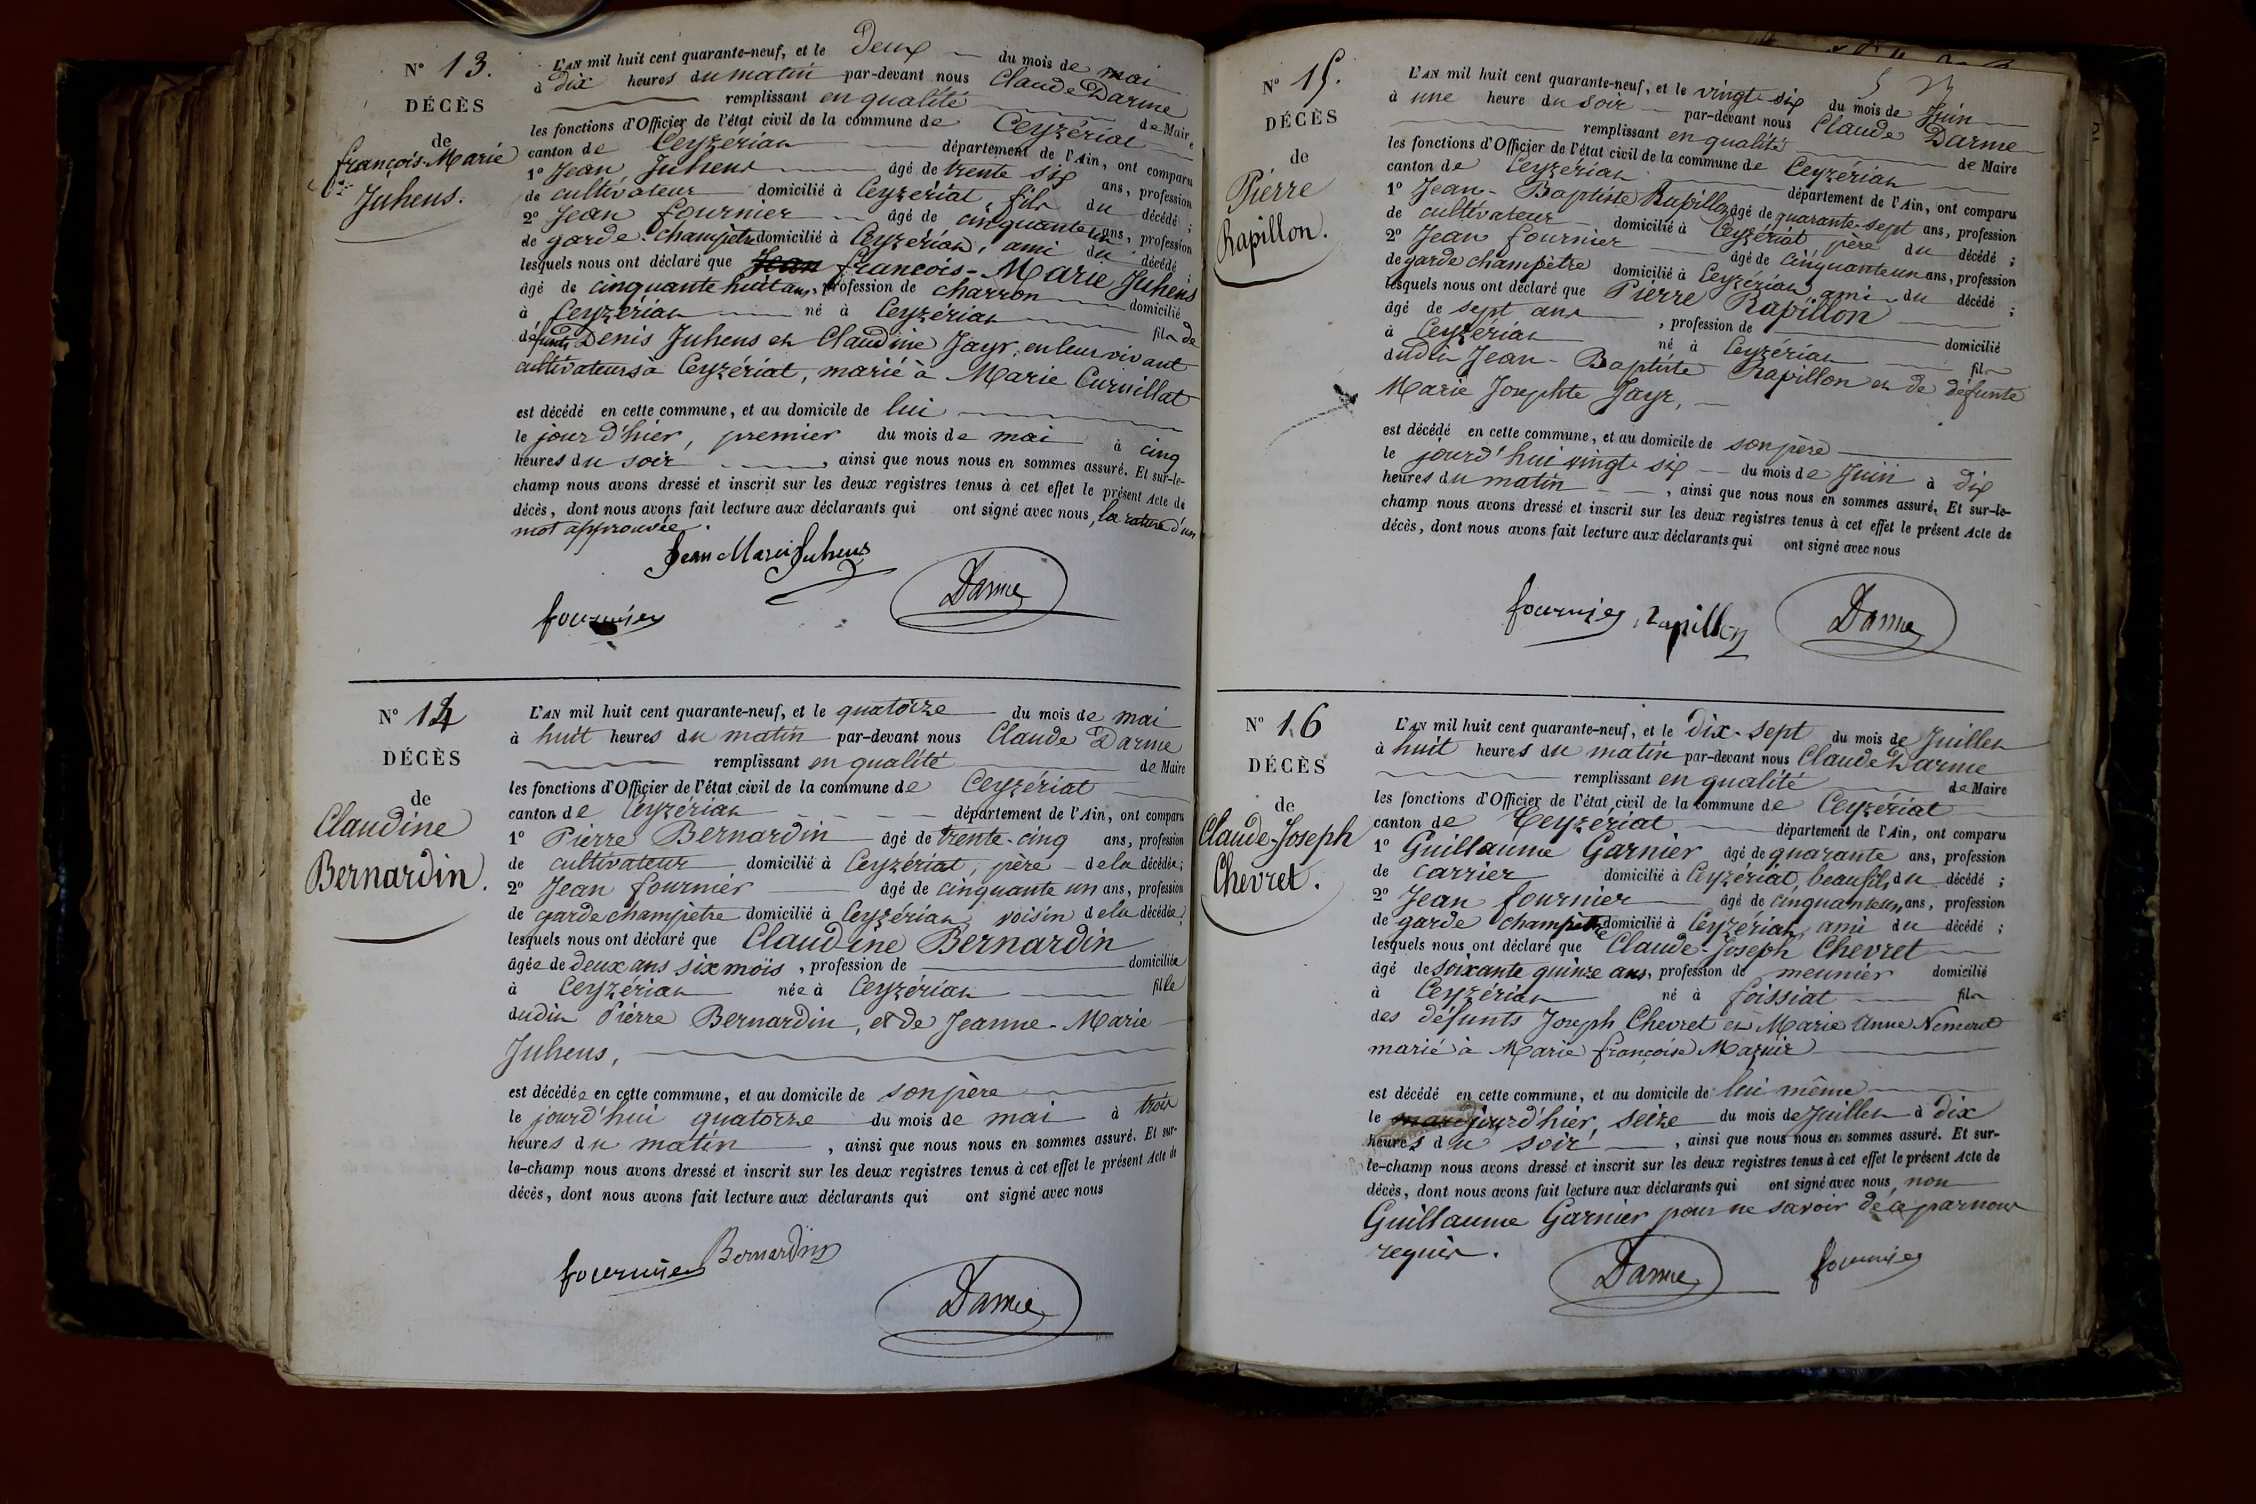 N° 13.
DÉCÈS
de
françois-Marie
Juhens.
L'AN mil huit cent quarante-neuf, et le Deux du mois de mai
à dix heures du matin par-devant nous Claude Darme
remplissant en qualité de Maire
les fonctions d'Officier de l'état civil de la commune de Ceyzériat
canton de Ceyzériat département de l'Ain, ont comparu
1° Jean Juhens âgé de trente six ans, profession
de cultivateur domicilié à Ceyzériat, fils du décédé ;
2° Jean fournier âgé de cinquante un ans, profession
de garde-champêtre domicilié à Ceyzériat, ami du décédé ;
lesquels nous ont déclaré que Jean françois-Marie Juhens
âgé de cinquante huit ans, profession de charron domicilié
à Ceyzériat né à Ceyzériat fils de
défunts Denis Juhens et Claudine Jayr, en leur vivant
cultivateurs à Ceyzériat, marié à Marie Curnillat
est décédé en cette commune, et au domicile de lui
le jour d'hier, premier du mois de mai à cinq
heures du soir, ainsi que nous nous en sommes assuré. Et sur-le-
champ nous avons dressé et inscrit sur les deux registres tenus à cet effet le présent Acte de
décès, dont nous avons fait lecture aux déclarants qui ont signé avec nous, la rature d'un
mot approuvée.
Jean Marie Juhens
fournier
Darme
N° 14
DÉCÈS
de
Claudine
Bernardin.
L'AN mil huit cent quarante-neuf, et le quatorze du mois de mai
à huit heures du matin par-devant nous Claude Darme
remplissant en qualité de Maire
les fonctions d'Officier de l'état civil de la commune de Ceyzériat
canton de Ceyzériat département de l'Ain, ont comparu
1° Pierre Bernardin âgé de trente-cinq ans, profession
de cultivateur domicilié à Ceyzériat, père de la décédée ;
2° Jean fournier âgé de cinquante un ans, profession
de garde champêtre domicilié à Ceyzériat, voisin de la décédée ;
lesquels nous ont déclaré que Claudine Bernardin
âgée de deux ans six mois, profession de domiciliée
à Ceyzériat née à Ceyzériat fille
dudit Pierre Bernardin, et de Jeanne-Marie
Juhens,
est décédée en cette commune, et au domicile de son père
le jourd'hui quatorze du mois de mai à trois
heures du matin, ainsi que nous nous en sommes assuré. Et sur-
le-champ nous avons dressé et inscrit sur les deux registres tenus à cet effet le présent Acte de
décès, dont nous avons fait lecture aux déclarants qui ont signé avec nous
fournier Bernardin
Darme
N° 15.
DÉCÈS
de
Pierre
Rapillon.
L'AN mil huit cent quarante-neuf, et le vingt-six du mois de Juin
à une heure du soir par-devant nous Claude Darme
remplissant en qualité de Maire
les fonctions d'Officier de l'état civil de la commune de Ceyzériat
canton de Ceyzériat département de l'Ain, ont comparu
1° Jean-Baptiste Rapillon âgé de quarante-sept ans, profession
de cultivateur domicilié à Ceyzériat, père du décédé ;
2° Jean fournier âgé de cinquante un ans, profession
de garde champêtre domicilié à Ceyzériat, ami du décédé ;
lesquels nous ont déclaré que Pierre Rapillon
âgé de sept ans, profession de domicilié
à Ceyzériat né à Ceyzériat fils
dudit Jean-Baptiste Rapillon et de défunte
Marie Josephte Jayr,
est décédé en cette commune, et au domicile de son père
le jourd'hui vingt-six du mois de Juin à dix
heures du matin, ainsi que nous nous en sommes assuré. Et sur-le-
champ nous avons dressé et inscrit sur les deux registres tenus à cet effet le présent Acte de
décès, dont nous avons fait lecture aux déclarants qui ont signé avec nous
fournier Rapillon
Darme
N° 16
DÉCÈS
de
Claude-Joseph
Chevret.
L'AN mil huit cent quarante-neuf, et le dix-sept du mois de Juillet
à huit heures du matin par-devant nous Claude Darme
remplissant en qualité de Maire
les fonctions d'Officier de l'état civil de la commune de Ceyzériat
canton de Ceyzériat département de l'Ain, ont comparu
1° Guillaume Garnier âgé de quarante ans, profession
de carrier domicilié à Ceyzériat, beau fils du décédé ;
2° Jean fournier âgé de cinquante un ans, profession
de garde champêtre domicilié à Ceyzériat, ami du décédé ;
lesquels nous ont déclaré que Claude-Joseph Chevret
âgé de soixante quinze ans, profession de meunier domicilié
à Ceyzériat né à foissiat fils
des défunts Joseph Chevret et Marie Anne
marié à Marie françoise Marnir
est décédé en cette commune, et au domicile de lui même
le jourd'hier, seize du mois de Juillet à dix
heures du soir, ainsi que nous nous en sommes assuré. Et sur-
le-champ nous avons dressé et inscrit sur les deux registres tenus à cet effet le présent Acte de
décès, dont nous avons fait lecture aux déclarants qui ont signé avec nous, non
Guillaume Garnier pour ne savoir de ce par nous
requis.
Darme
fournier